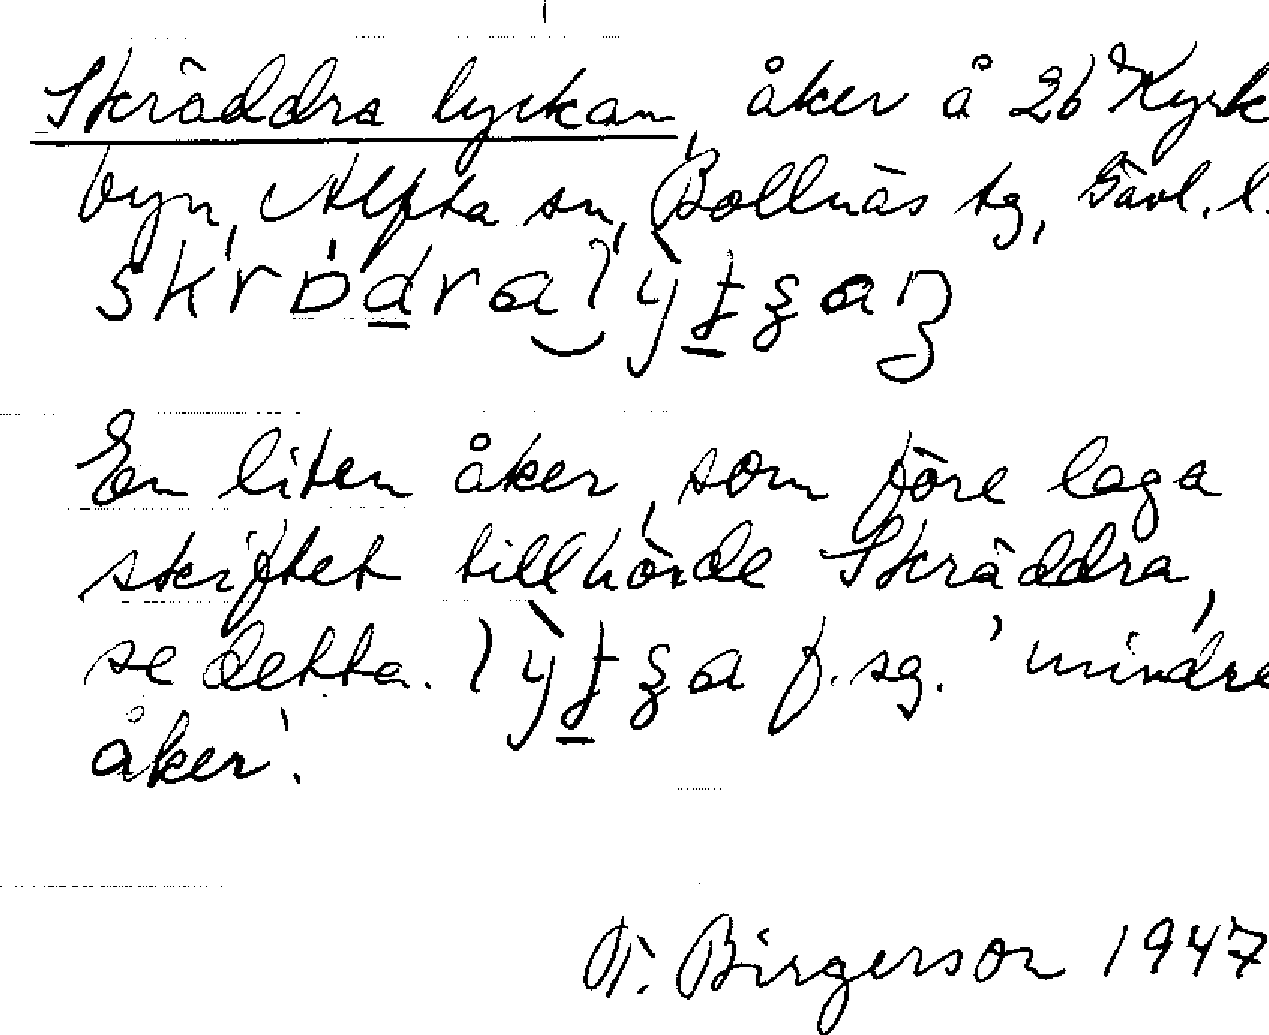 Skräddra lyckan, åker å 2b Kyrk
byn, Alfta sn, Bollnäs tg, Gävl. l.
En liten åker, som före laga
skiftet tillhörde Skräddra,
se detta. f. sg. 'mindre
åker'.
Birgerson 1947